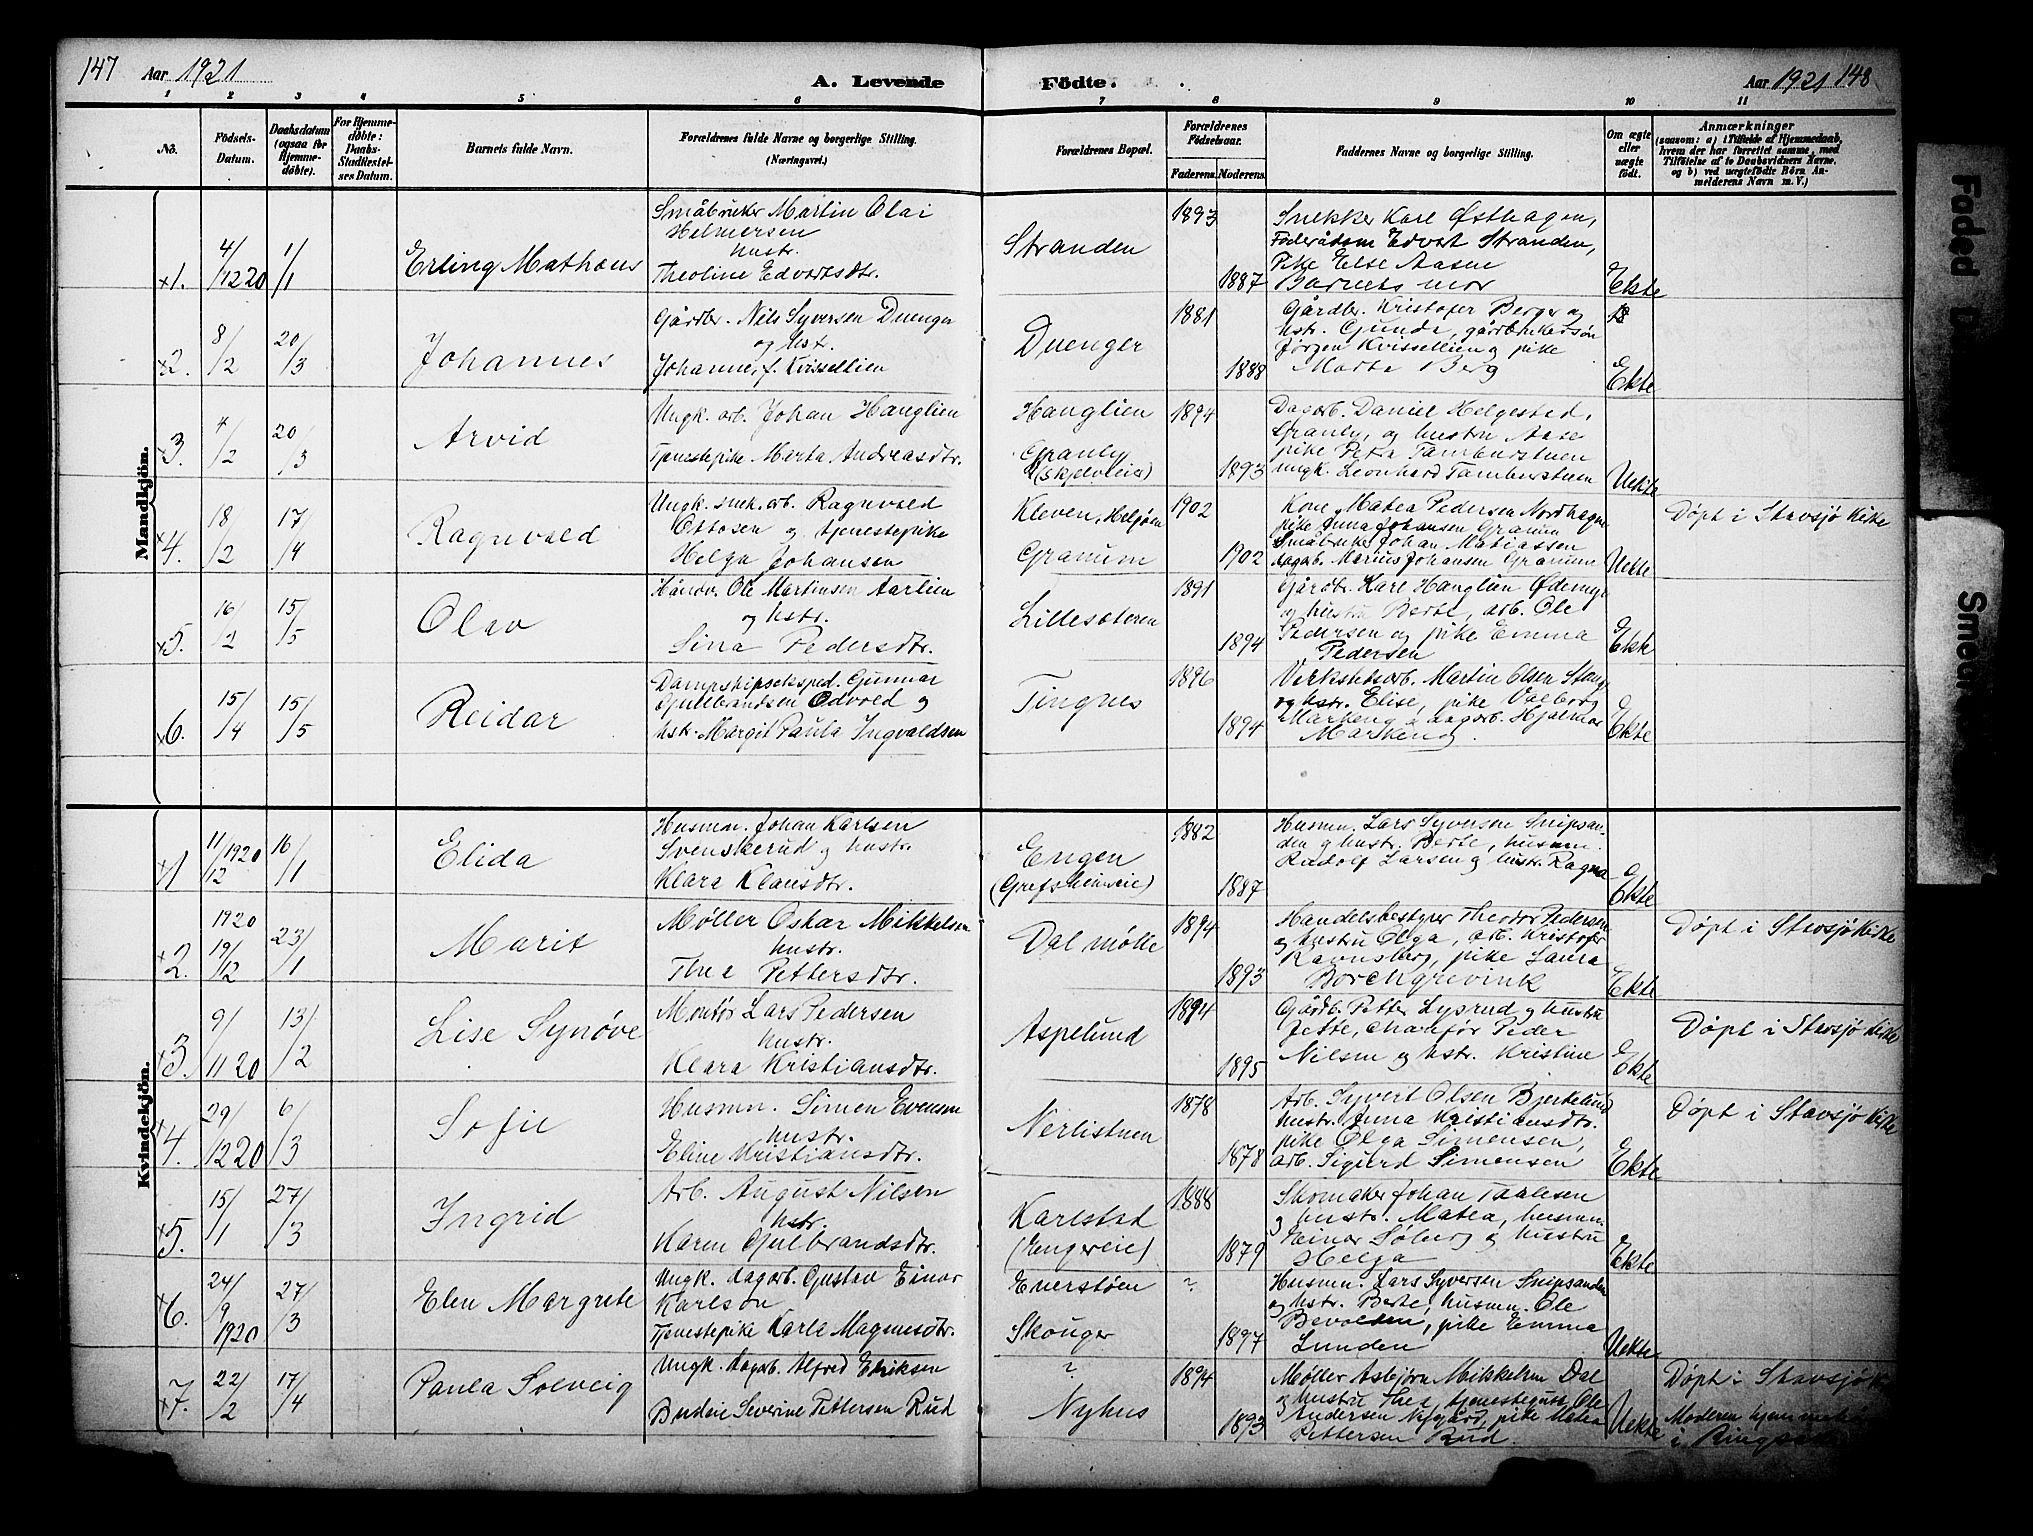 147 Aar 1921 A. Levende Födte. Aar 1921 148
1 2 3 4 5 6 7 8 9 10 11
No. Födsels-Datum. Daabsdatum (ogsaa for Hjemmedöbte). For Hjemmedöbte: Daabs-Stadfæstelses Datum. Barnets fulde Navn. Forældrenes fulde Navne og borgerlige Stilling. (Næringsvei.) Forældrenes Bopæl. Forældrenes Födselsaar. Faderens. Moderens. Faddernes Navne og borgerlige Stilling. Om ægte eller uægte födt. Anmærkninger
(saasom: a) i Tilfælde af Hjemmedaab, hvem der har forrettet samme, med Tilföielse af to Daabsvidners Navne, og b) ved uægtefödte Börn Anmelderens Navn m. V.)
Mandkjön.
x1. 4/12 20 1/1 Erling Mathæus
Småbruker Martin Olai
Helmersen
hustr.
Theoline Edvartsdtr.
Stranden 1893 1887
Snekker Karl Østhagen,
Føderådsm Edvart Stranden,
Pike Else Aasen
Barnets mor
Ekte
x2. 8/2 20/3 Johannes
Gårdbr. Nils Syversen Duenger
og hst.
Johanne f. Kvissellien
Duenger 1881 1888
Gårdbr. Kristofer Berger og
hst. Gunde, gårdbrukersøn
Jørgen Kvissellien og pike
Marte Berg
Ekte
x3. 4/2 20/3 Arvid
Ungk. arb. Johan Hanglien
Tjenestepike Marta Andreasdtr.
Hanglien
Granly
(Skjelveie) 1894 1893
Dagarb. Daniel Helgestad,
Granly, og hustru Aase
pike Petra Tamburstuen
ungk. Leonhard Tamburstuen
Uekte
x4. 18/2 17/4 Ragnvald
Ungk. snek. arb. Ragnvald
Ottosen og tjenestepike
Helga Johansen
Kleven, Heljøm
Granum 1902 1902
Kone Matea Pedersen Nordhagen
pike Anna Johansen Granum
Småbruker Johan Matiassen
dagarb. Marius Johansen Granum
Uekte
Døpt i Stavsjø Kirke
x5. 16/2 15/5 Olav
Håndv. Ole Martinsen Aarlien
og hstr.
Lina Pedersdtr.
Lillesæteren 1891 1894
Gårdbr. Karl Hanglien Ødemyr
og hustru Berte, arb. Ole
Pedersen og pike Emma
Pedersen
Ekte
x6. 15/4 15/5 Reidar
Dampskipseksped. Gunnar
Gulbrandsen Odvold og
hstr. Margit Paula Ingvaldsen
Tingnes 1896 1894
Verkstedsarb. Martin Olsen
og hstr. Elise, pike Valborg
Markeng, dagarb. Hjalmar
Markeng.
Ekte
Kvindekjön.
x1 11/12 1920 16/1 Elida
Husmn. Johan Karlsen
Svenskerud og hustr.
Klara Klausdtr.
Engen
(Grefsheimeie) 1882 1887
Husmn. Lars Syversen Snipsan-
den og hustr. Berte, husmn.
Rudolf Larsen og hustr. Ragna
Ekte
x2. 1920 19/12 23/1 Marit
Møller Oskar Mikkelsen
hustr.
Thea Pettersdtr.
Dal mølle 1894 1893
Handelsbestyrer Theodor Pedersen
og hustru Olga, arb. Kristofer
Ravnsberg, pike Laura
Borchgrevink
Ekte
Døpt i Stavsjø Kirke
x3. 9/11 20 13/2 Lise Synøve
Montør Lars Pedersen
hustr.
Klara Kristiansdtr.
Aspelund 1894 1895
Gårdb. Petter Lysrud og hustru
Jette, chauffør Peder
Nilsen og hstr. Kristine
Ekte
Døpt i Stavsjø Kirke
x4. 29/12 20 6/3 Sofie
Husmn. Simen Evensen
hustr.
Eline Kristiansdtr.
Nerlistuen 1878 1878
Arb. Syvert Olsen Bjerkelund
hustr. Anna Kristiansdtr.
pike Olga Simensen,
arb. Sigurd Simensen
Ekte
Døpt i Stavsjø Kirke
x5. 15/1 27/3 Ingrid
Arb. August Nilsen
hstr.
Karen Gulbrandsdtr.
Karlstad
(Engereie) 1888 1879
Skomaker Johan Paalesen
og hustr. Matea, husmn.
Einar Søberg og hustru
Helga
Ekte
x6. 24/9 1920 27/3 Elen Margrete
Ungk. dagarb. Gustav Einar
Karlson
Tjenestepike Karla Magnusdtr.
Everstøen
Skouger ? 1897
Husmn. Lars Syversen Snipsanden
og hstr. Berte, husmn. Ole
Bevolden, pike Emma
Lunden
Uekte
x7. 22/2 17/4 Paula Solveig
Ungk. dagarb. Alfred Eriksen
Budeie Severine Pettersen Rud
?
Nyhus 1894 1893
Møller Asbjørn Mikkelsen Dal
og hustru Thea, tjenestegut Ole
Andersen Nygård, pike Mathea
Pettersen Rud.
Uekte
Døpt i Stavsjø K
Moderen hjemmehør
i Ringsaker
Faded
Smeared